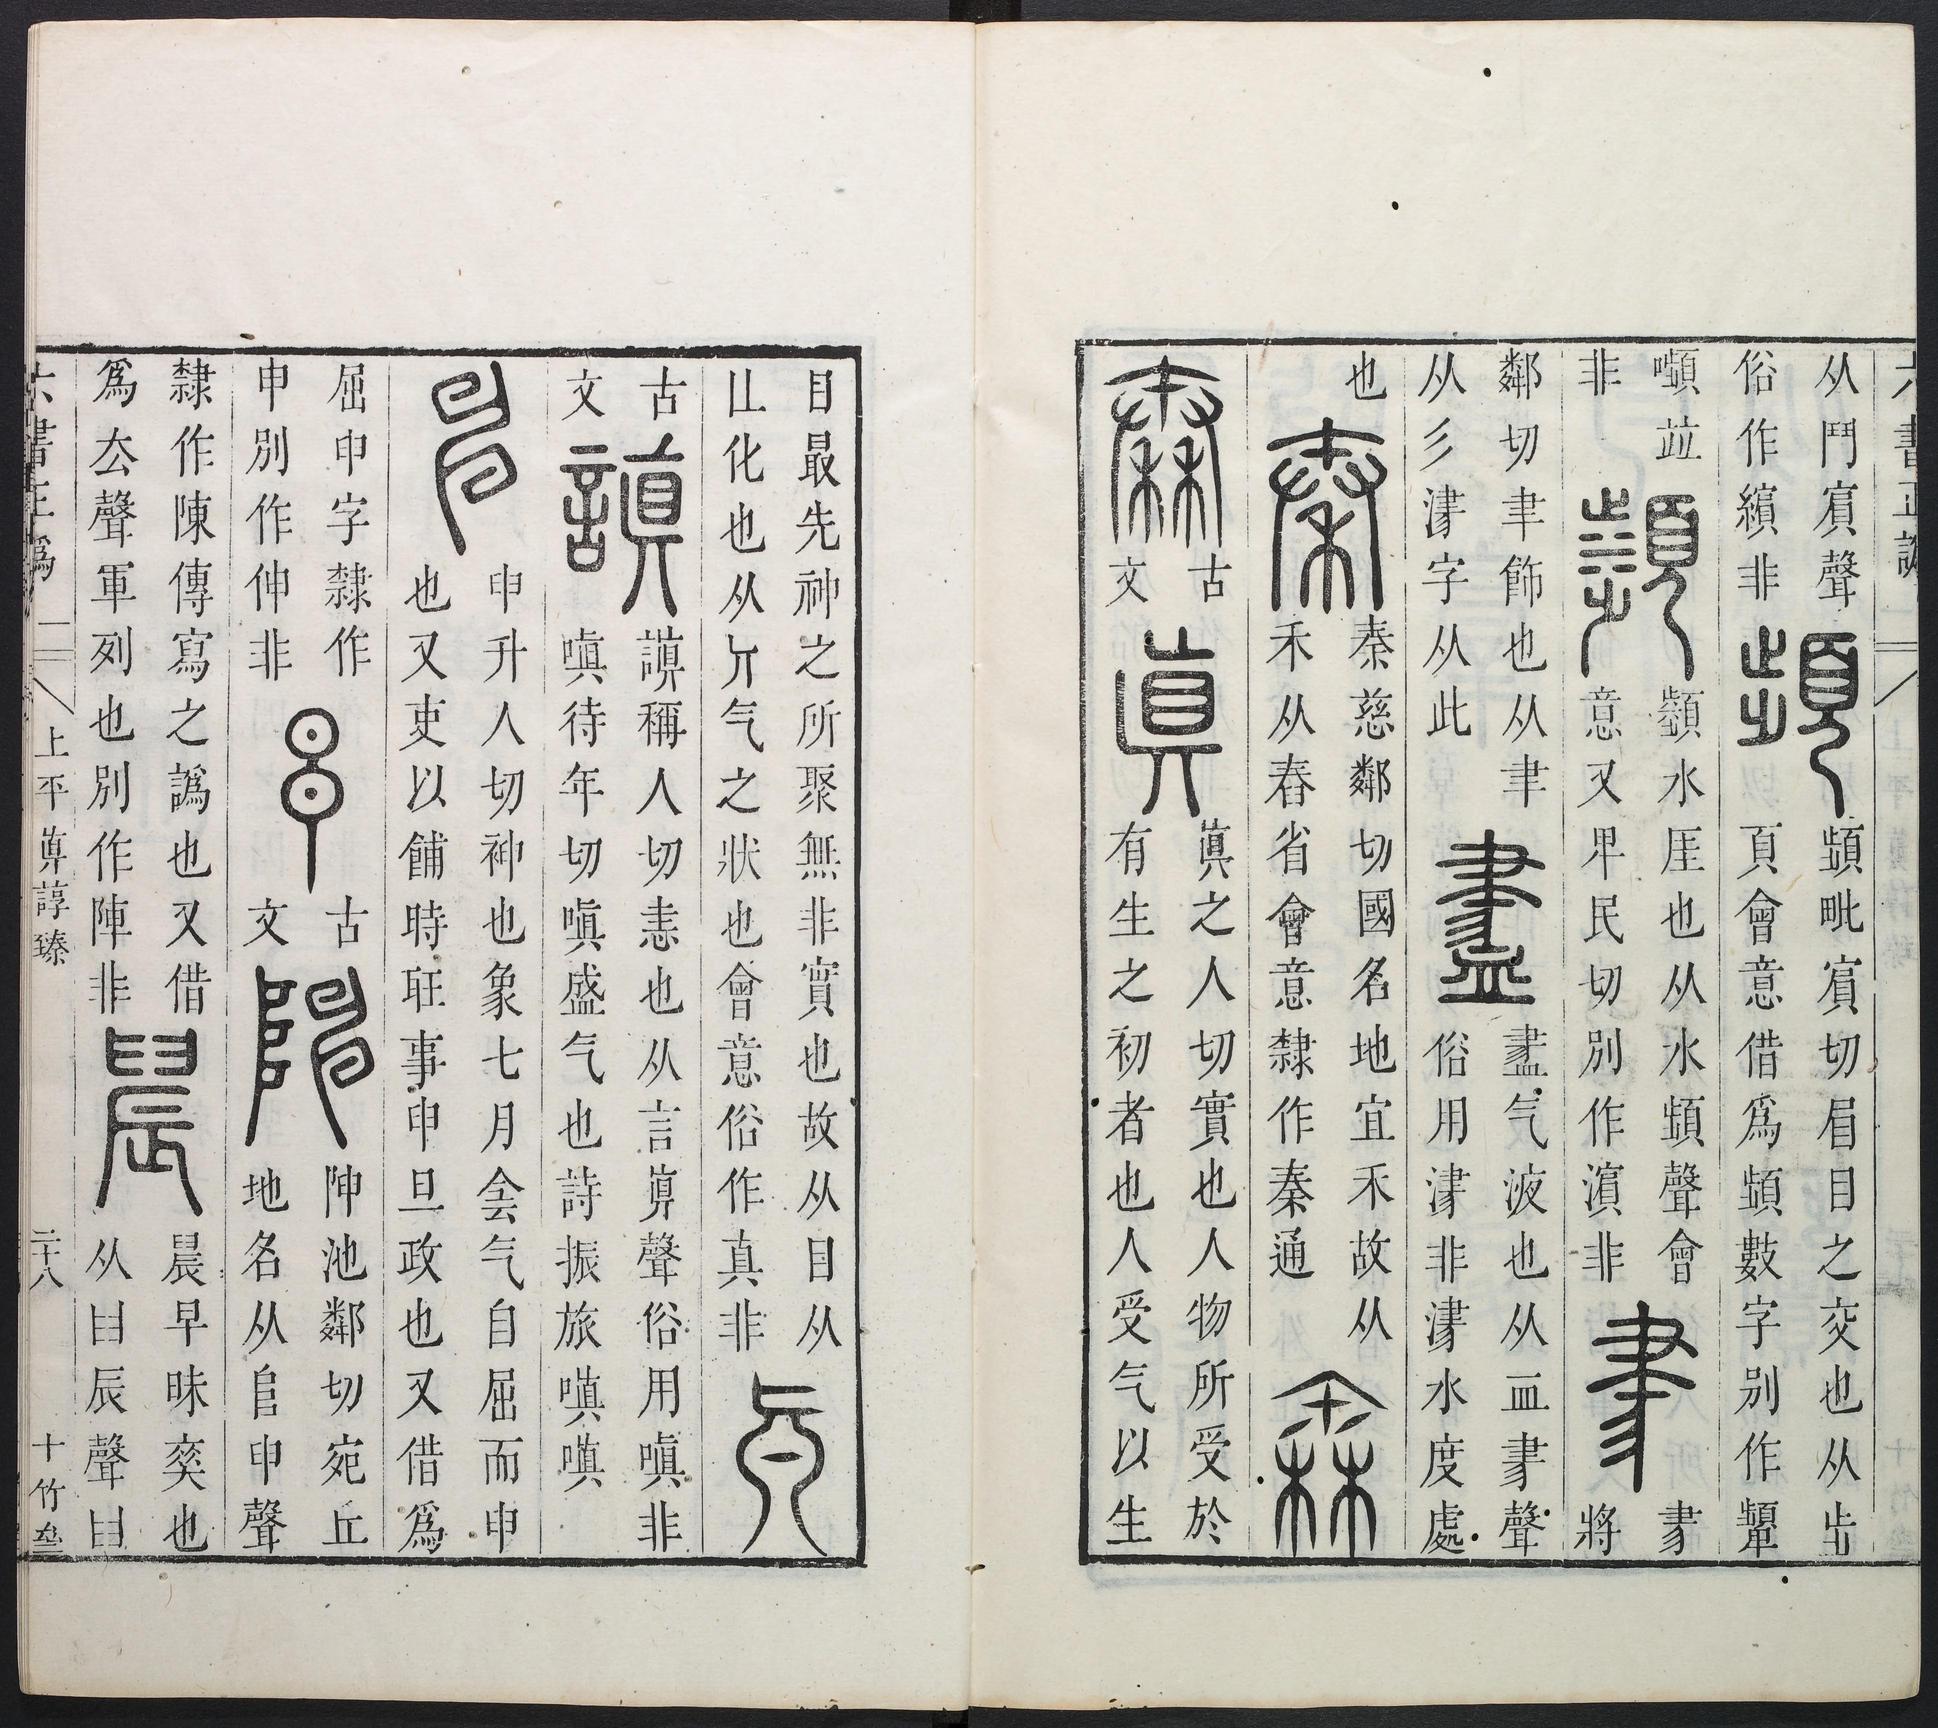 六書正譌
从鬥賓聲
俗作繽非
顰毗賓切眉目之交也从步
頁會意借爲頻數字別作顰
嚬竝
非
瀕水厓也从水頻聲會
意又毕民切別作濵非
將
鄰切聿飾也从聿
从彡津字从此
气液也从血聲
俗用津非津水度處
也
秦慈鄰切國名地宜禾故从
禾从舂省會意隸作秦通
古
文
眞之人切實也人物所受於
有生之初者也人受气以生
目最先神之所聚無非實也故从目从
乚化也从丌气之狀也會意俗作真非
古
文
謓稱人切恚也从言眞聲俗用嗔非
嗔待年切嗔盛气也詩振旅嗔嗔
申升人切神也象七月侌气自屈而申
也又吏以餔時聑事申旦政也又借爲
屈申字隸作
申別作伸非
古
文
陳池鄰切宛丘
地名从𨸏申聲
隸作陳傳寫之譌也又借
爲厺聲軍列也別作陣非
晨早昧爽也
从𦥑辰聲𦥑
六書正譌
上平 眞諄臻
二十八
十竹